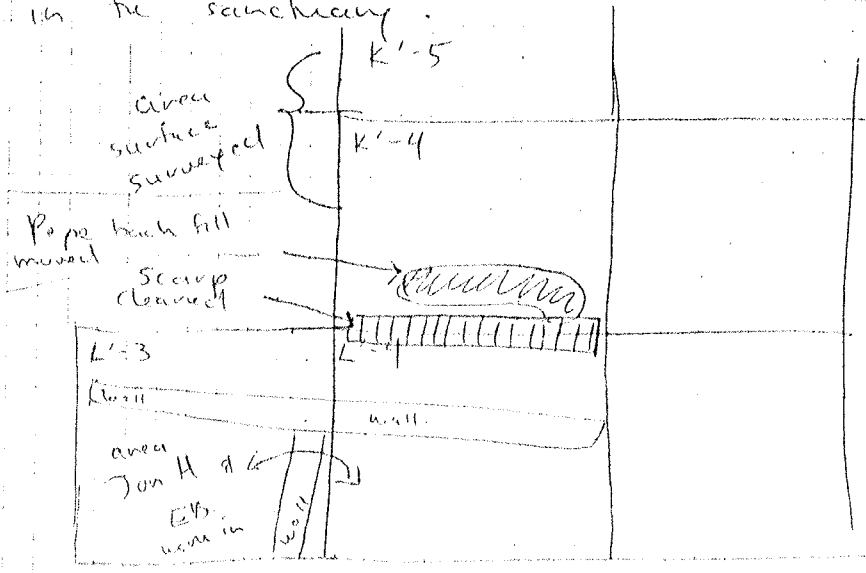 in the sanctuary.
K'-5
area
surface
surveyed
K'-4
Pope back fill
moved
Scarp
cleaned
L'-3
L'-4
wall
wall
area
Jon H &
EB
were in
wall